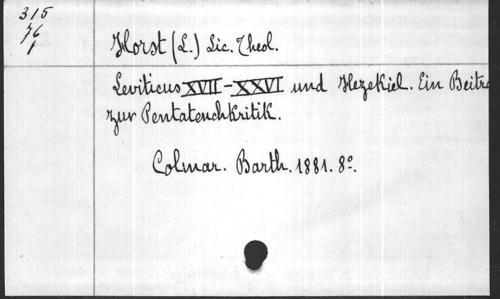 315
76
1
Horst (L.) Lic. Theol.
Leviticus XVII-XXVI und Hezekiel. Ein Beitra
zur Pentateuchkritik.
Colmar. Barth. 1881. 8°.